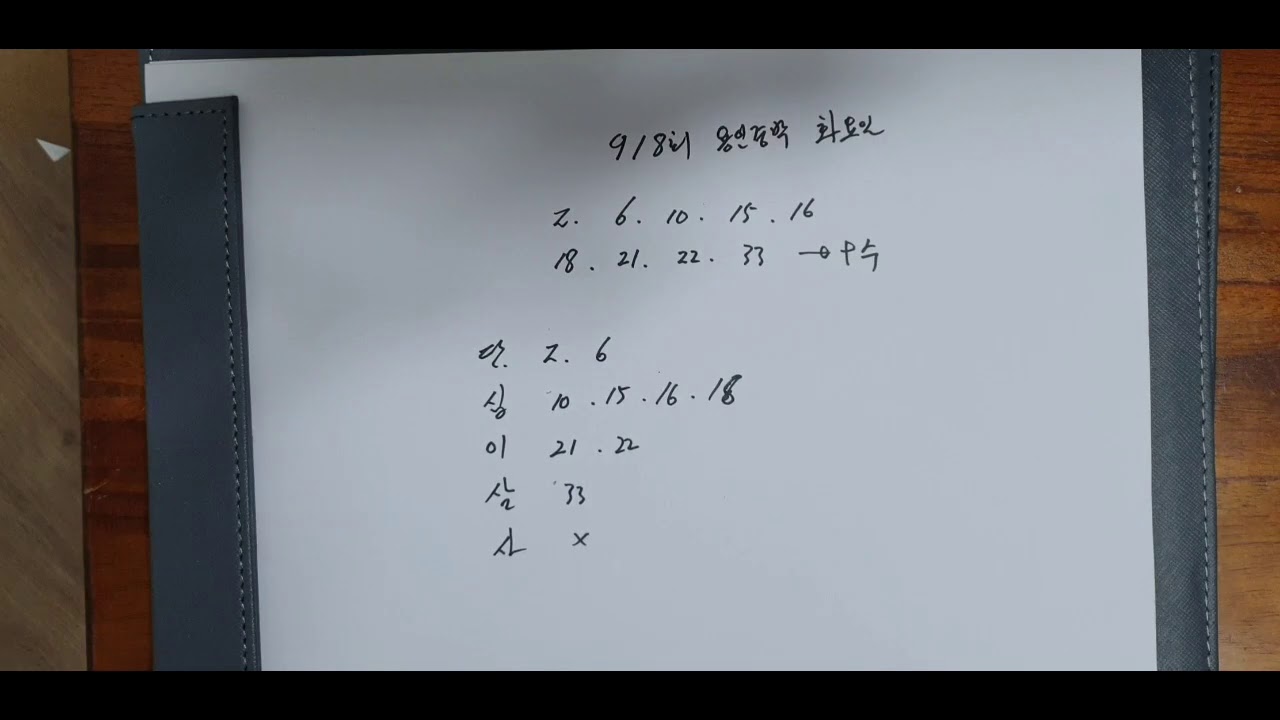 918회 용인동백 화요일
2. 6. 10. 15. 16
18. 21. 22. 33 → 우수
단. 2. 6
십 10. 15. 16. 18
이 21. 22
삼 33
사 ×